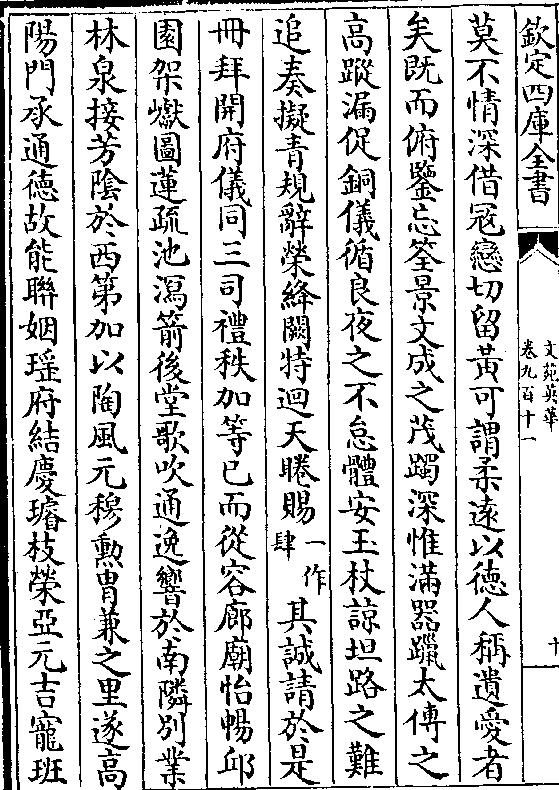 欽定四庫全書
文苑英華
卷九百十一
十
莫不情深借冦戀切留黃可謂柔逺以德人稱遺愛者
矣既而俯鑒忘筌景文成之茂躅深惟滿器躡太傅之
高蹤漏促銅儀循良夜之不怠體安玉杖諒坦路之難
追奏擬青規辭榮絳闕特迴天睠賜一作肆其誠請於是
冊拜開府儀同三司禮秩加等已而從容廊廟怡暢邱
園架巘圖蓮疏池瀉箭後堂歌吹通逸響於南隣別業
林泉接芳陰於西第加以陶風元穆勲胄兼之里遂高
陽門承通德故能聯姻瑶府結慶璿枝榮亞元吉寵班